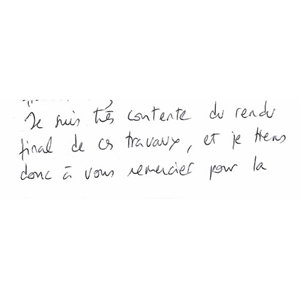 Je suis très contente du rendu
final de ces travaux, et je tiens
donc à vous remercier pour la